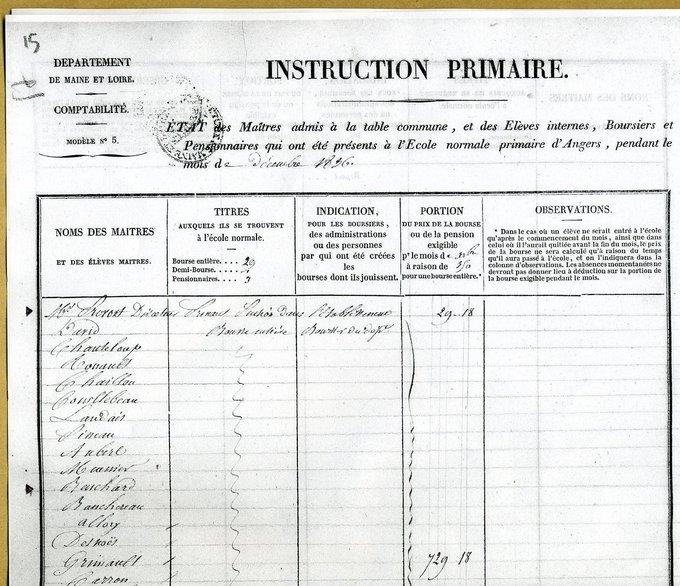 15
DEPARTEMENT
DE MAINE ET LOIRE.
COMPTABILITÉ.
MODÈLE N° 5.
INSTRUCTION PRIMAIRE.
ÉTAT des Maîtres admis à la table commune, et des Elèves internes, Boursiers et
Pensionnaires qui ont été présents à l'Ecole normale primaire d'Angers, pendant le
mois de Décembre 1836.
NOMS DES MAITRES
ET DES ÉLÈVES MAITRES.
TITRES
AUXQUELS ILS SE TROUVENT
à l'école normale.
Bourse entière.... 29
Demi-Bourse.....
Pensionnaires.... 3
INDICATION,
POUR LES BOURSIERS,
des administrations
ou des personnes
par qui ont été créées
les
bourses dont ils jouissent.
PORTION
DU PRIX DE LA BOURSE
ou de la pension
exigible
pr le mois de
à raison de
pour une bourse entière.
OBSERVATIONS.
* Dans le cas où un élève ne serait entré à l'école
qu'après le commencement du mois, ainsi que dans
celui où il l'aurait quittée avant la fin du mois, le prix
de la bourse ne sera calculé qu'à raison du temps
qu'il aura passé à l'école, et on l'indiquera dans la
colonne d'observations. Les absences momentanées ne
devront pas donner lieu à déduction sur la portion de
la bourse exigible pendant le mois.
29 18
David Bourse entière
Chanteloup
Houault
Chaillou
Courtebeau
Landais
Pineau
Aubert
Meunier
Bouchard
Banchereau
alloy
Desnoës
Grimault 729 18
Carron